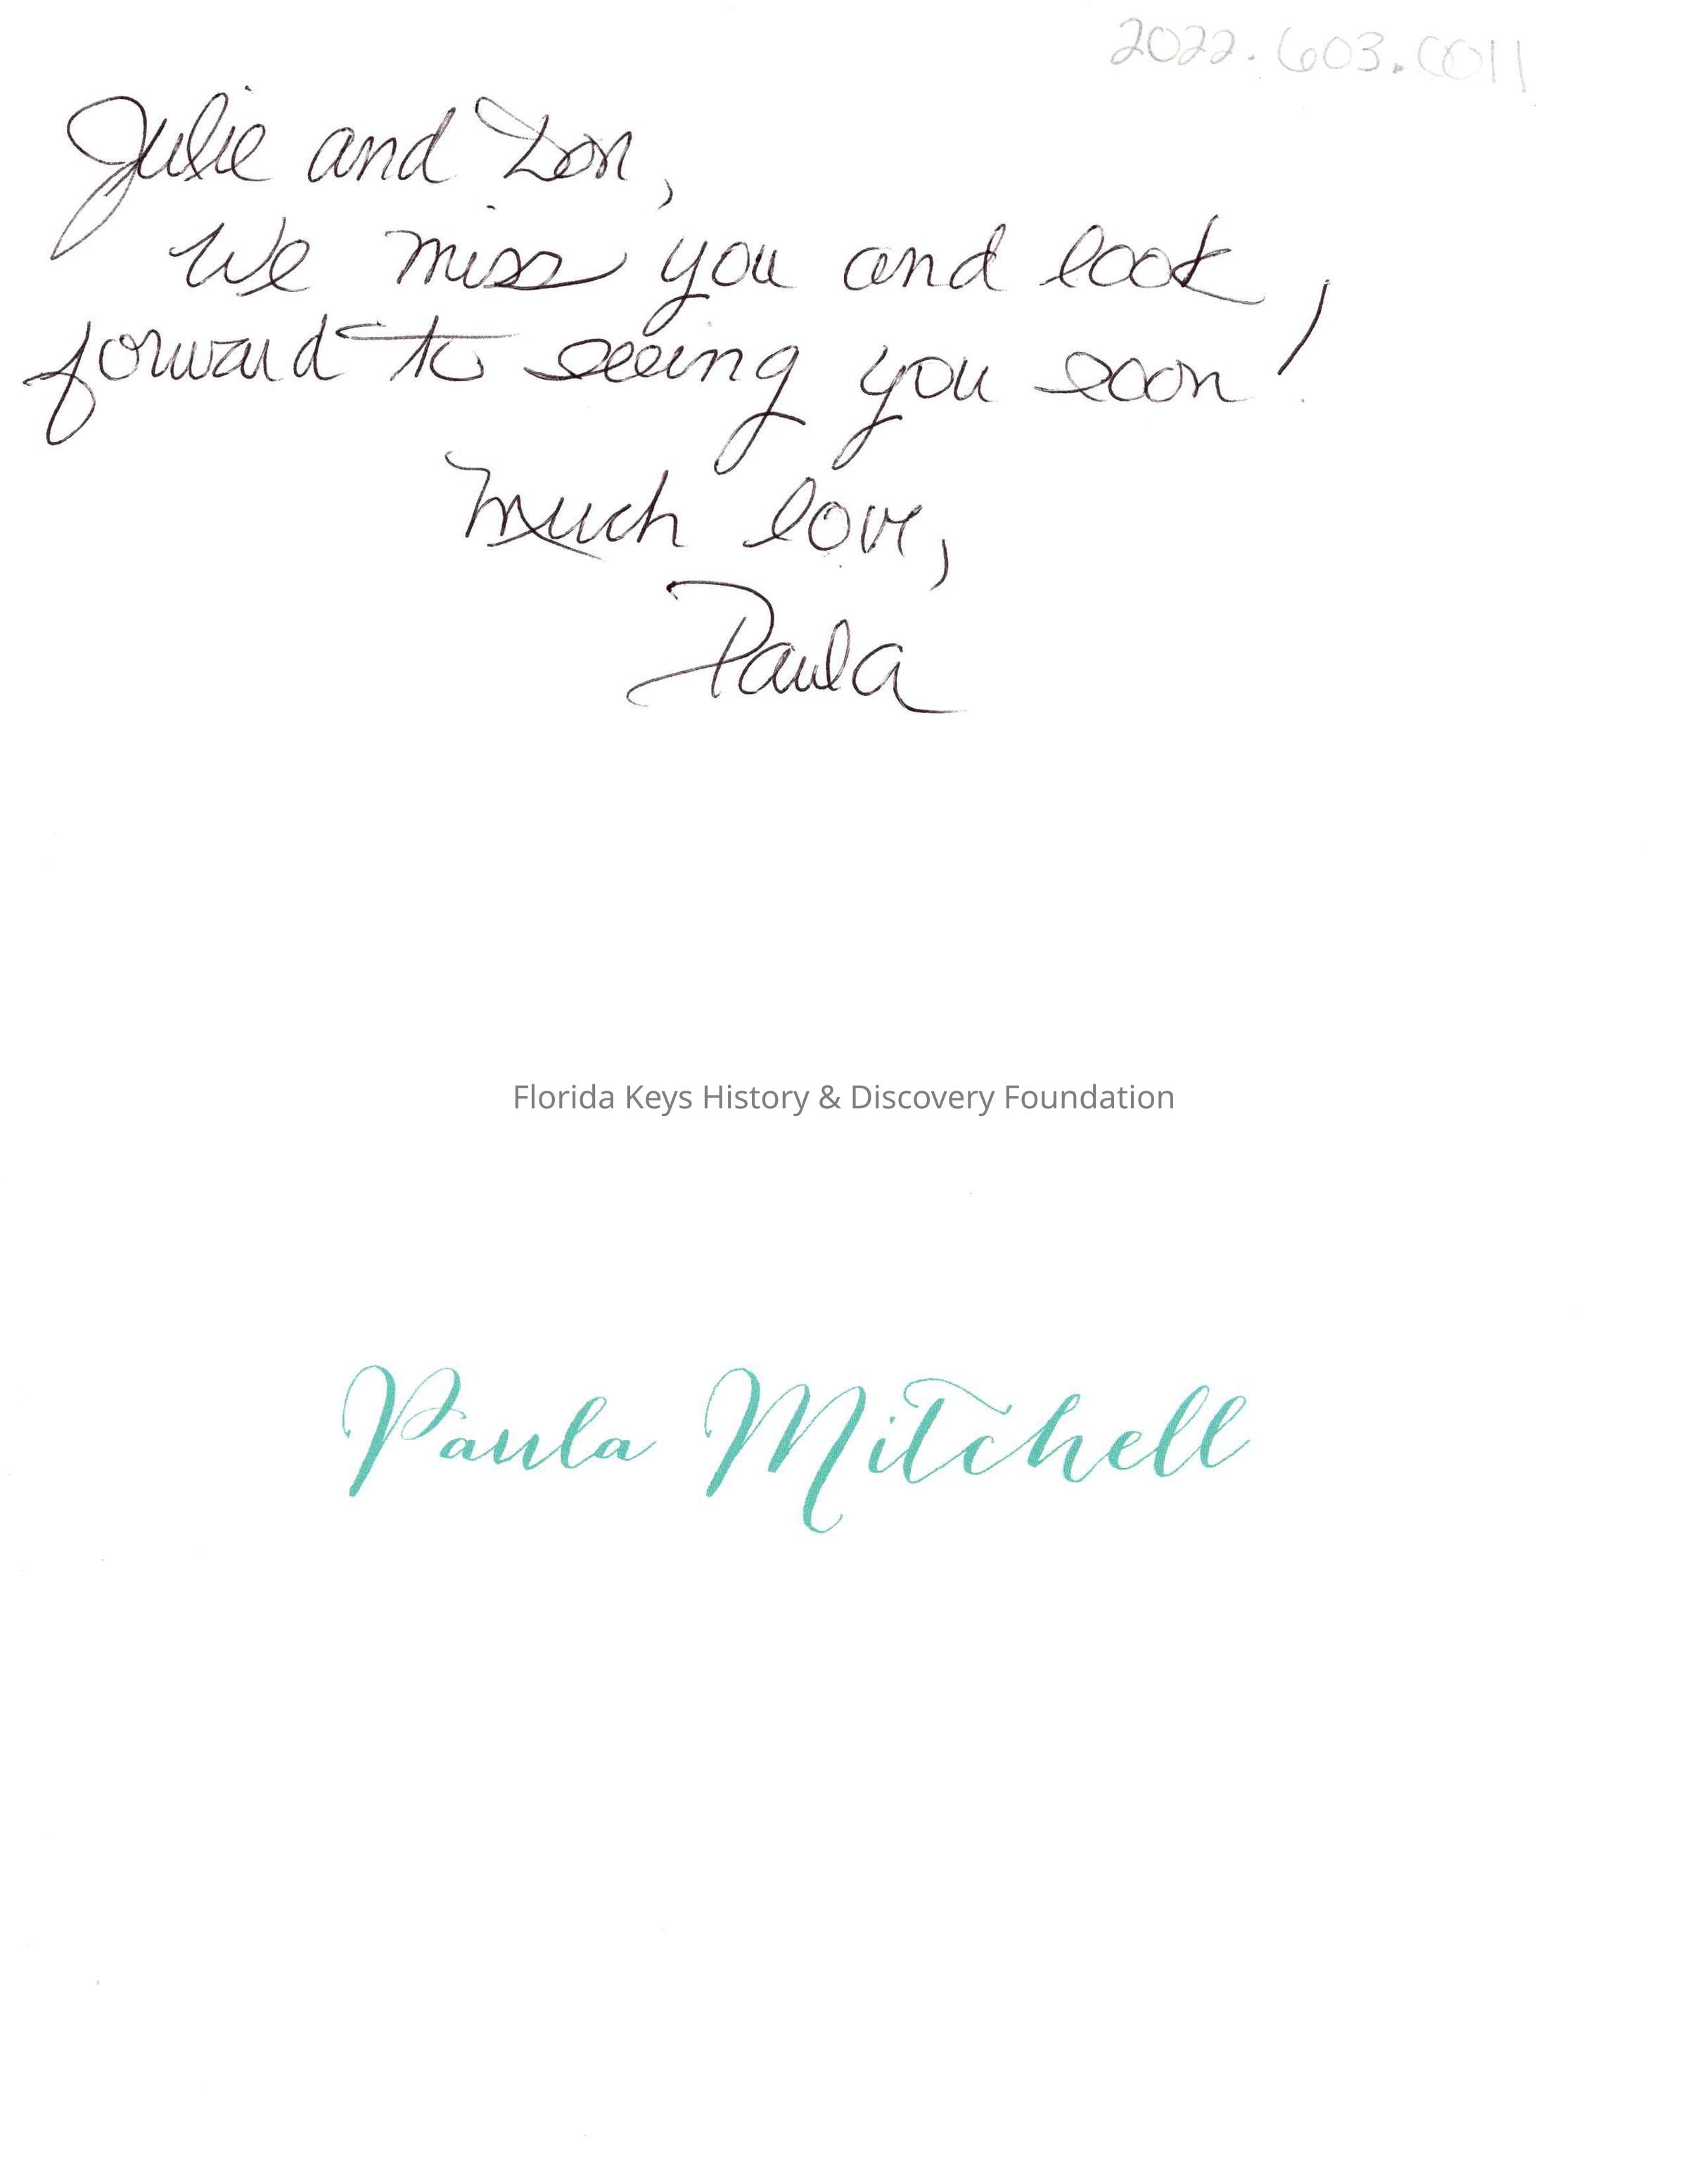 2022.603.0011
Julie and Don,
We miss you and look
forward to seeing you soon!
Much love,
Paula
Florida Keys History & Discovery Foundation
Paula Mitchell